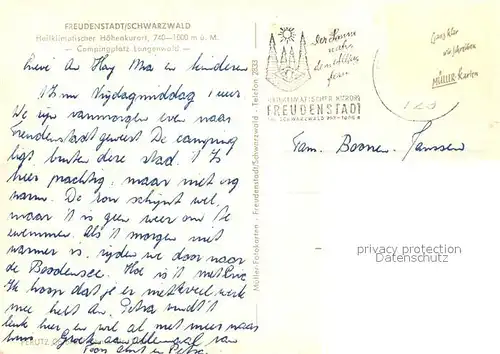 FREUDENSTADT/SCHWARZWALD
Heilklimatischer Höhenkurort, 740–1000 m ü. M.
— Campingplatz Langenwald —
Lieve An Hay Mia en kinderen
't Is nu Vrijdagmiddag 1 uur.
We zijn vanmorgen even naar
Freudenstadt geweest De camping
ligt buiten deze stad. 't Is
hier prachtig, maar niet erg
warm. De zon schijnt wel,
maar 't is geen weer om te
zwemmen. Als 't morgen niet
warmer is, rijden we door naar
de Bodensee. Hoe is 't met
Ik hoop dat je er niet veel werk
mee hebt An. Petra vindt 't
leuk hier en wil al niet meer naar
huis Groeten aan allemaal van
Toon Annt en Petra
Müller-Fotokarten · Freudenstadt/Schwarzwald · Telefon 2833
Der Sonne
nahe
dem Alltag
fern
HEILKLIMATISCHER KURORT
FREUDENSTADT
IM SCHWARZWALD
Ganz klar
wir schreiben
MÜLLER-Karten
Fam. Boonen-Janssen
privacy protection
privacy protection